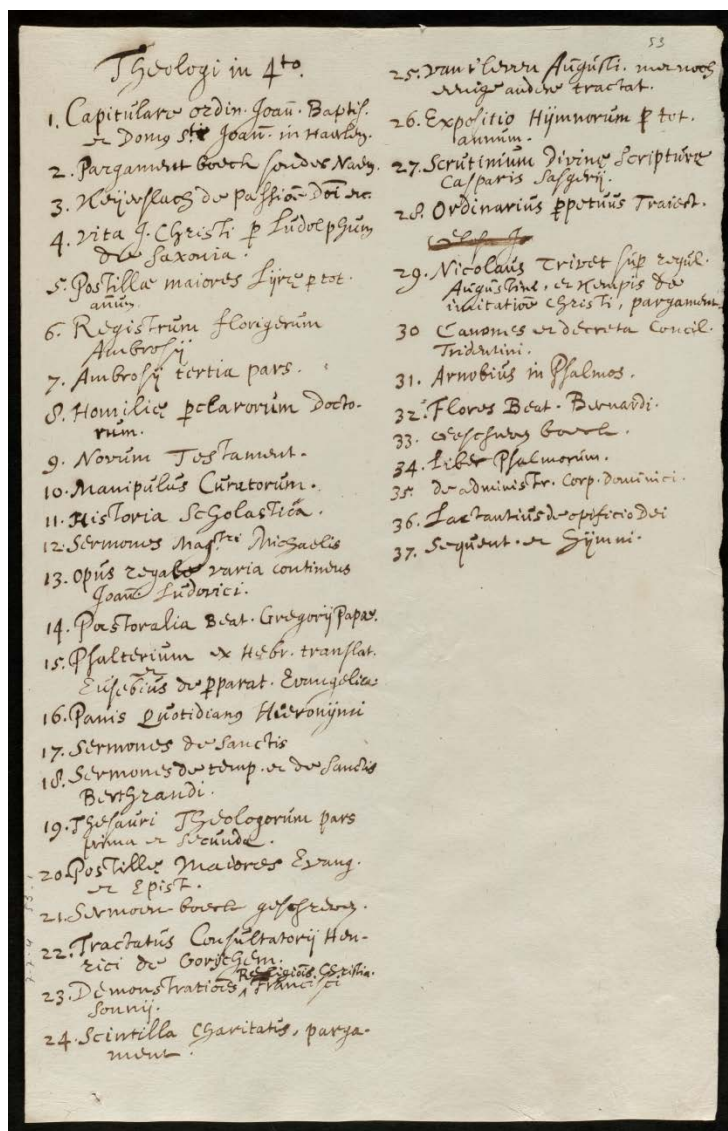 53
Theologi in 4to.
1. Capitulare ordin. Joañ. Baptis.
et Domus Sti Joañ. in Haerlem.
2. Pargament boeck sonder Naem.
3. Keyerslach de passiõe Dõi etc.
4. Vita J. Christi p Ludolphum
de Saxonia.
5. Postillæ maiores Lyrę p tot.
añum.
6. Registrum florigerum
Ambrosij
7. Ambrosij tertia pars.
8. Homilię pclarorum Docto-
rum.
9. Novum Testament.
10. Manipulus Curatorum.
11. Historia Scholastica.
12. Sermones Mag.tri Michaelis
13. Opus regale varia continens
Joañ. Ludovici.
14. Pastoralia Beat. Gregorij Papæ.
15. Psalterium ex Hebr. translat.
et
Eusebius de pparat. Evangelica
16. Panis Quotidianus Hieronymi
17. Sermones de Sanctis
18. Sermones de temp. et de Sanctis
Berthrandi.
19. Thesauri Theologorum pars
prima et secunda.
20. Postillę Maiores Evang.
et Epist.
21. Sermoen boeck geschreven.
22. Tractatus Consultatorij Hen-
rici de Gorichem.
Religiõis Christia.
23. Demonstratiões Francisci
Sonnij.
24. Scintilla Charitatis, parga-
ment.
25. van t leven Augusti. met noch
eenige andere tractat.
26. Expositio Hijmnorum p tot.
annum.
27. Scrutinium Divinę Scripturę
Casparis Sasgerij.
28. Ordinarius ppetuus Traiect.
29. Nicolaus Trivet sup regul.
Augustini, et Kempis de
imitatiõe Christi, pargament.
30 Canones et decreta Concil.
Tridentini.
31. Arnobius in Psalmos.
32. Flores Beat. Bernardi.
33. Geschreven boeck.
34. Liber Psalmorum.
35. de administr. Corp. Dominici.
36. Lactantius de opificio Dei
37. Sequent. et Hijmni.